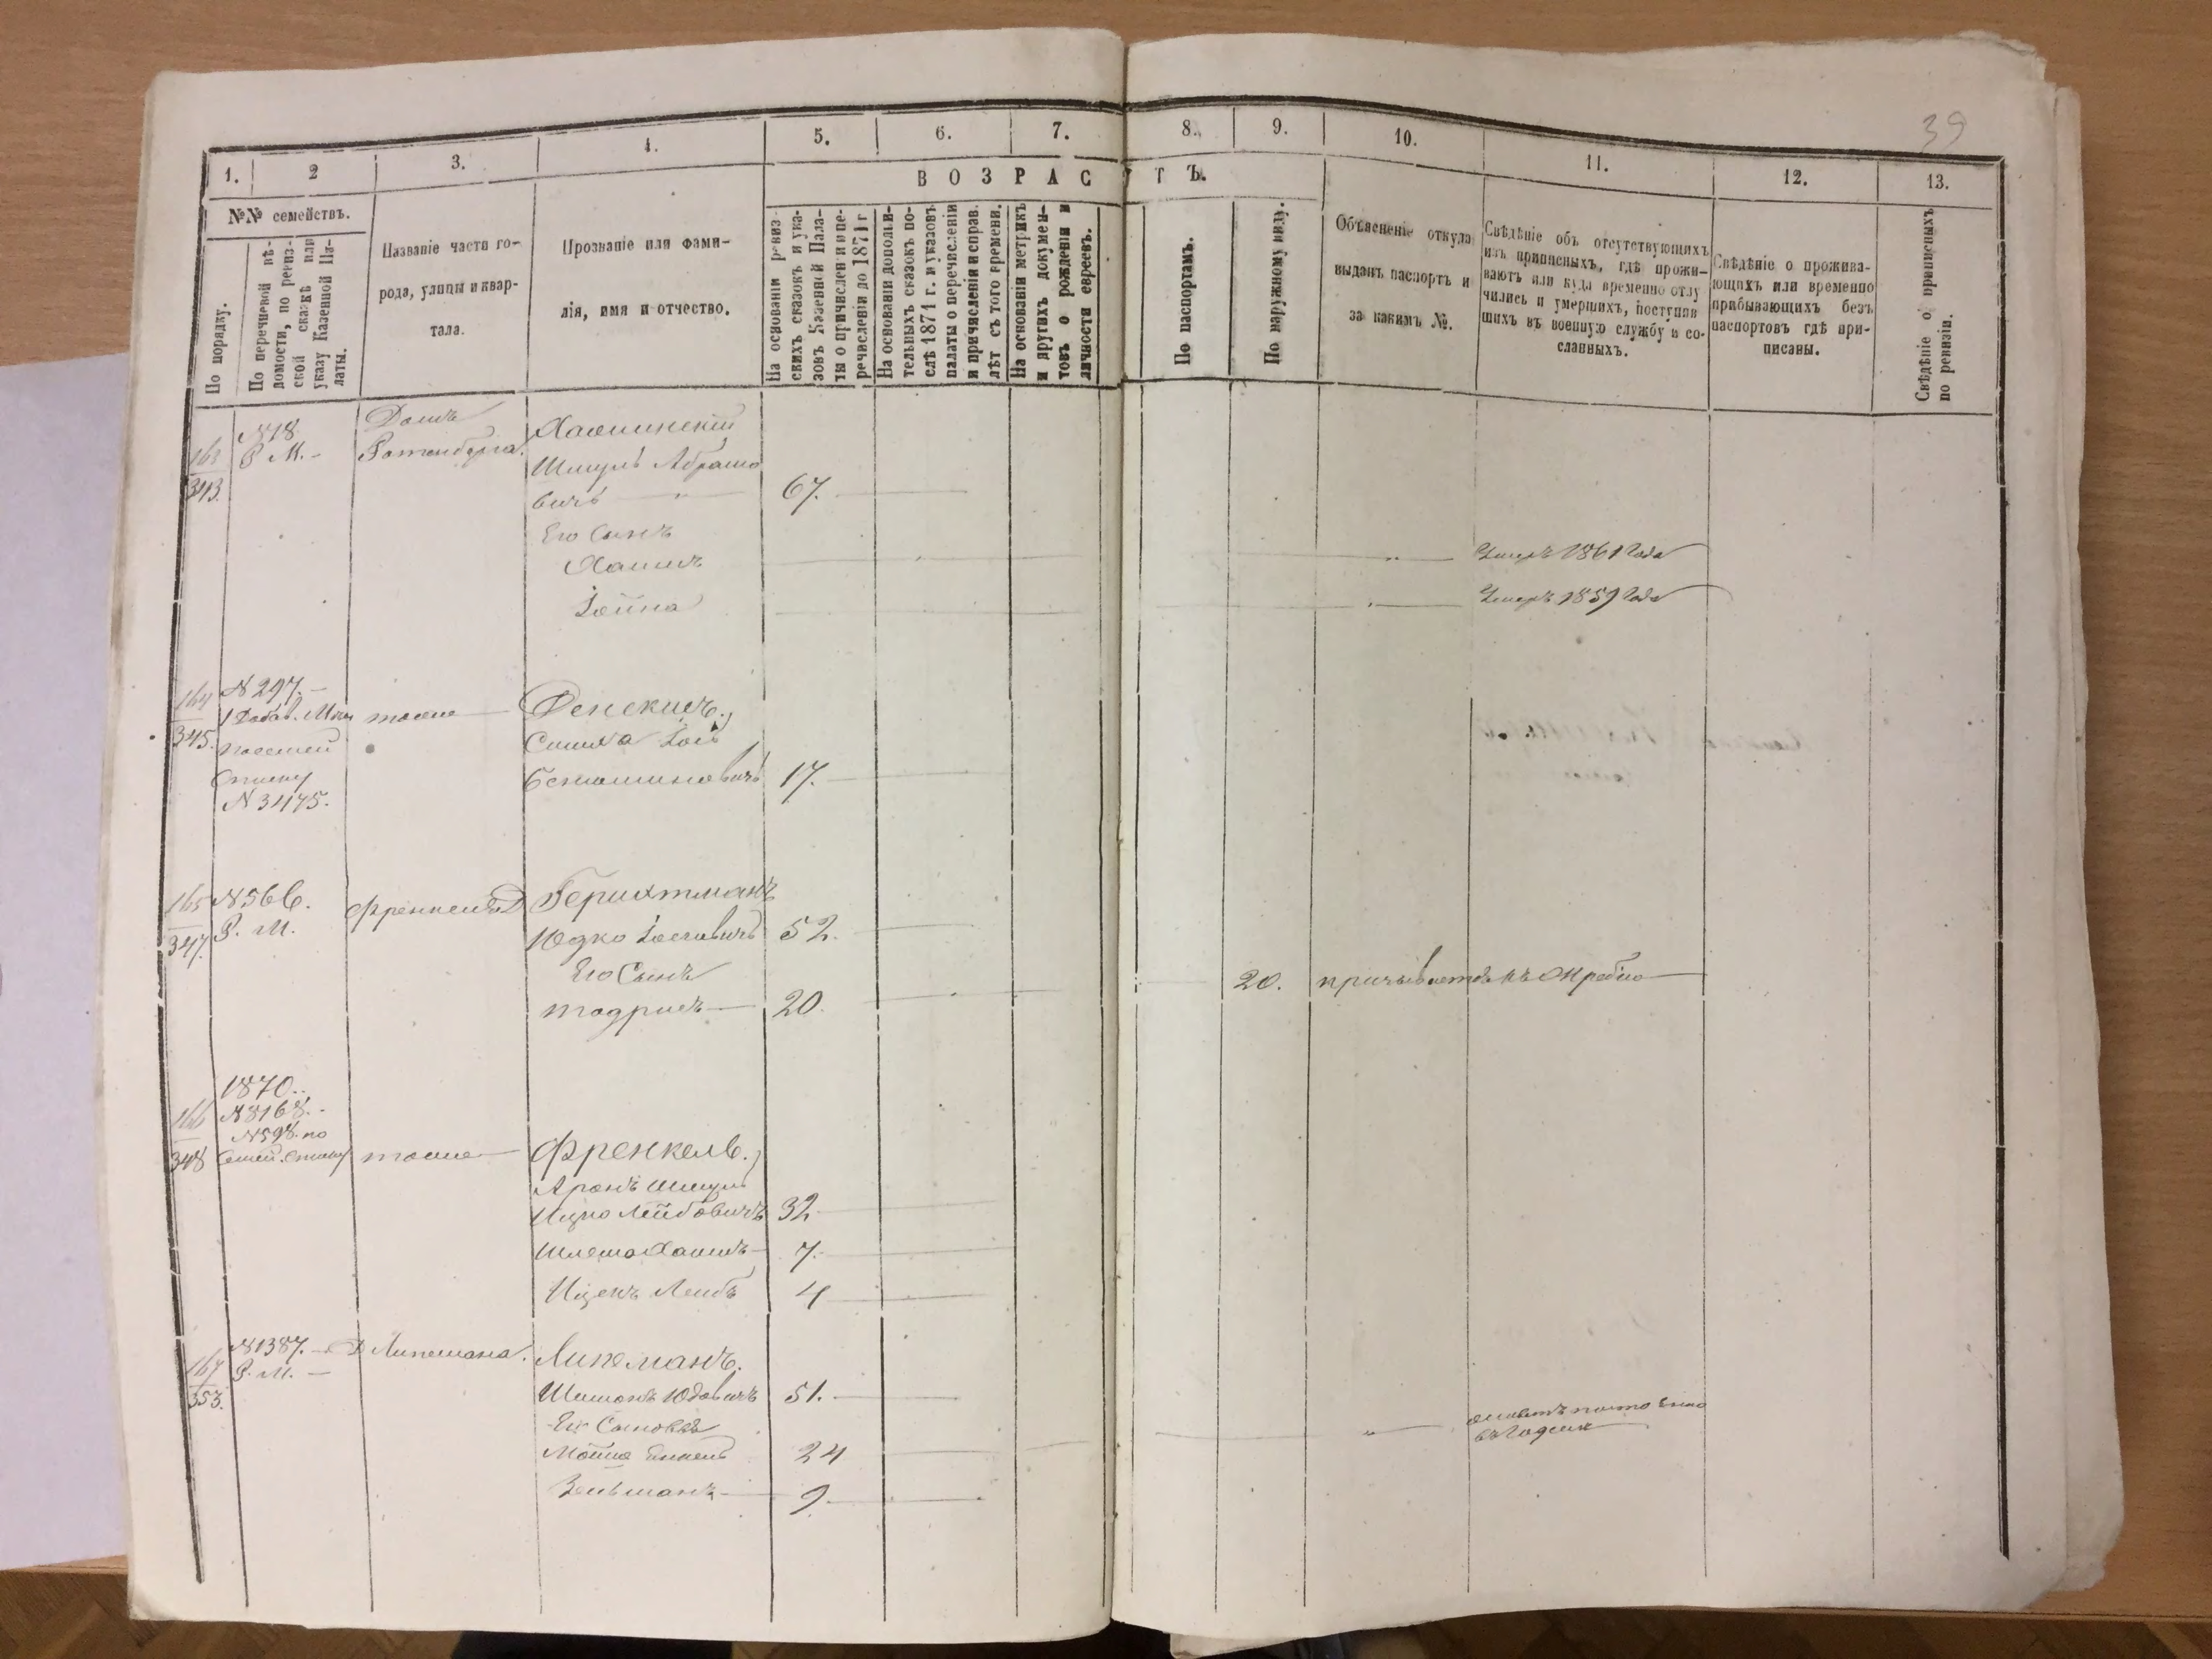 39
1. 2 3. 4. 5. 6. 7. 8. 9. 10. 11. 12. 13.
№№ семействъ.
ВОЗРАСТЪ.
По порядку.
По перечневой вѣ-
домости, по ревиз-
ской сказкѣ или
указу Казенной Па-
латы.
Названіе части го-
рода, улицы и квар-
тала.
Прозваніе или фами-
лія, имя и отчество.
На основаніи ревиз-
скихъ сказокъ и ука-
зовъ Казенной Пала-
ты о причислен и и пе-
речисленіи до 1871 г
На основаніи дополни-
тельныхъ сказокъ по-
слѣ 1871 г. и указовъ
палаты о перечисленіи
и причисленіи и справ.
лѣт съ того времени.
На основаніи метрикъ
и другихъ докумен-
товъ о рожденіи и
личности евреевъ.
По паспортамъ.
По наружному виду.
Объясненіе откуда
выданъ паспортъ и
за какимъ №.
Свѣдѣніе объ отсутствующихъ
изъ приписныхъ, гдѣ прожи-
ваютъ или куда временно отлу
чились и умершихъ, поступив
шихъ въ военную службу и со-
сланныхъ.
Свѣдѣніе о прожива-
ющихъ или временно
прибывающихъ безъ
паспортовъ гдѣ при-
писаны.
Свѣдѣніе о приписныхъ
по ревизіи.
163
343.
N 18
Р М.-
Домъ
Ротенберга.
Шмуль Абрамо
вичъ — " — 67.
Его Сынъ
Хаимъ — Умеръ 1861 Года
Іойна — Умеръ 1859 Года
164
345.
N 297.-
N 3475.
тоже
Бениаминовичъ 17.
165
347.
N 566.
Р. М.
Френкеля Д
Герихтманъ
Юдко Іосiовичъ 52.
Его Сынъ
Тодрисъ — 20. 20. призывается къ жребію
166
348
1870.
N 8168.-
N 598. по
Семей. списку
тоже
Френкель.
Аронъ Шмуль
Ицко Лейбовичъ 32
Шлема Хаимъ — 7.
Ицекъ Лейбъ 4
167
353.
N 1387. —
Р. М. —
Д Липсмана.
Липсманъ.
Шимонъ Юдовичъ 51.
Его Сыновья
Мойше Енкель 24
Зельманъ — 9.